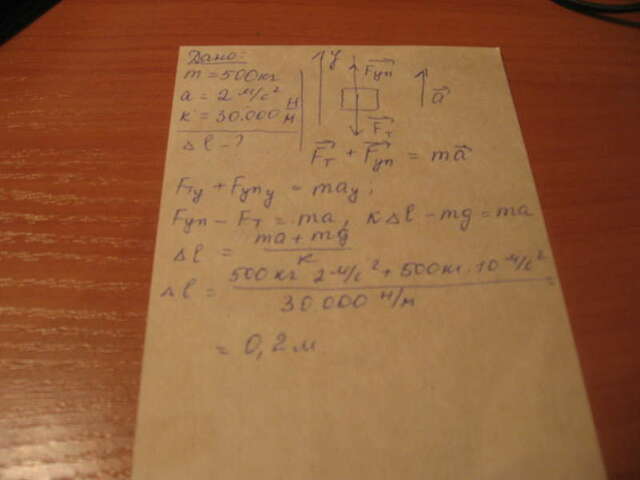 Дано:
m = 500 кг
a = 2 м/с²
к = 30.000 н/м
Δl - ?
y
Fуп
a
Fт
Fт + Fуп = ma
Fтy + Fупy = may;
Fуп - Fт = ma, кΔl - mg = ma
Δl = ma + mg / к
Δl = 500 кг 2 м/с² + 500 кг · 10 м/с² / 30 000 н/м =
= 0,2 м